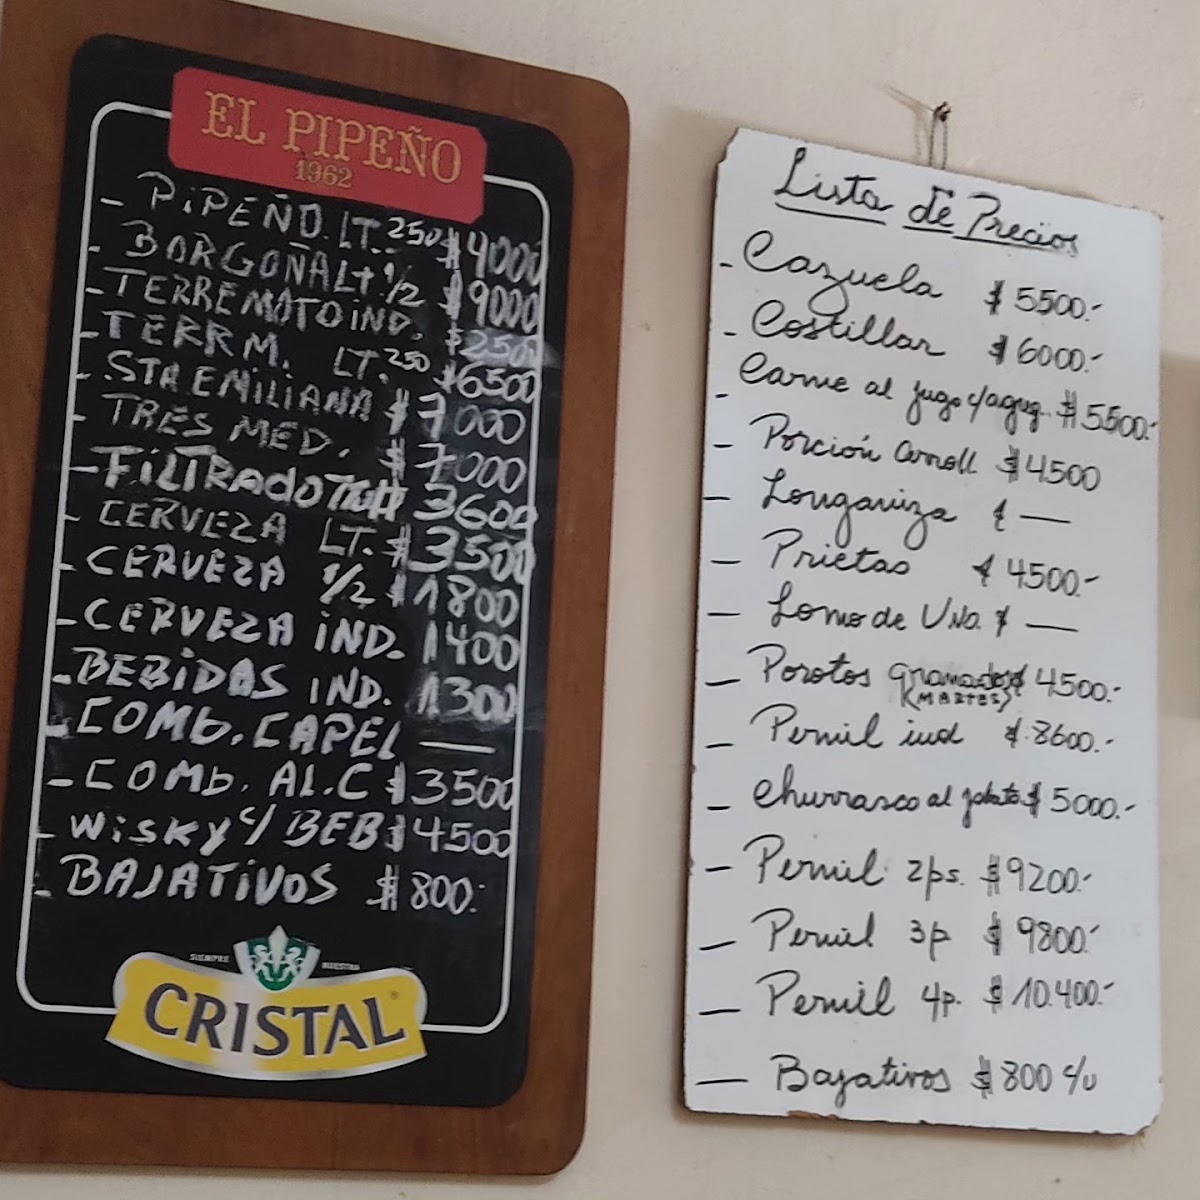 EL PIPEÑO
1962
- PIPEÑO. LT. 250 $4000
- BORGOÑA LT 1/2 $9000
- TERREMOTO IND. $2500
- TERRM. LT. 250 $6500
- STA EMILIANA $7000
- TRES MED. $7000
- FILTRADO 3600
- CERVEZA LT. $3500
- CERVEZA 1/2 $1800
- CERVEZA IND. 1400
- BEBIDAS IND. 1300
- COMb. CAPEL —
- COMb. AL.C $3500
- WISKY c/ BEB $4500
- BAJATIVOS $800.-
SIEMPRE NUESTRA
CRISTAL
Lista de Precios
- Cazuela $5500.-
- Costillar $6000.-
- Carne al jugo c/agreg. $5500.-
- Porción Arroll $4500
- Longaniza $ —
- Prietas $4500.-
- Lomo de $ —
- Porotos granados $4500.-
(MARTES)
- Pernil ind $.8600.-
- Churrasco al $5000.-
- Pernil 2ps. $9200.-
- Pernil 3p $9800.-
- Pernil 4p. $10.400.-
- Bajativos $800 c/u